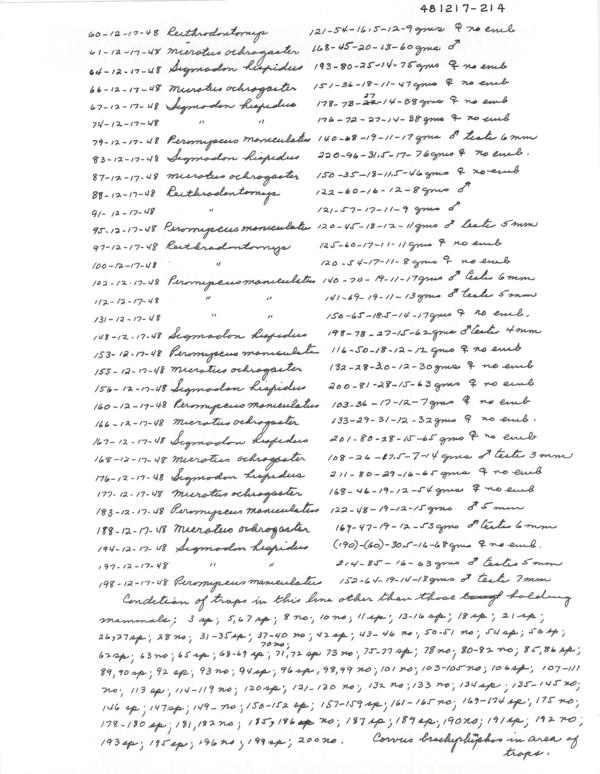 481217-214
60-12-17-48 Reithrodontomys 121-54-16.5-12-9gms ♀ no emb
61-12-17-48 Microtus ochrogaster 168-45-20-13-60gms ♂
64-12-17-48 Sigmodon hispidus 193-80-25-14-75gms ♀ no emb
66-12-17-48 Microtus ochrogaster 151-36-18-11-47gms ♀ no emb
67-12-17-48 Sigmodon hispidus 178-78-27-14-38gms ♀ no emb
74-12-17-48 " " 176-72-27-14-38gms ♀ no emb
79-12-17-48 Peromyscus maniculatus 140-68-19-11-17gms ♂ testes 6mm
83-12-17-48 Sigmodon hispidus 220-96-31.5-17-76gms ♀ no emb.
87-12-17-48 Microtus ochrogaster 150-35-18-11.5-46gms ♀ no emb
88-12-17-48 Reithrodontomys 122-60-16-12-8gms ♂
91-12-17-48 " 121-57-17-11-9 gms ♂
95-12-17-48 Peromyscus maniculatus 120-45-18-12-11gms ♂ testes 5mm
97-12-17-48 Reithrodontomys 125-60-17-11-11gms ♀ no emb
100-12-17-48 " 120-54-17-11-8gms ♀ no emb
102-12-17-48 Peromyscus maniculatus 140-70-19-11-17gms ♂ testes 6mm
112-12-17-48 " " 141-69-19-11-13gms ♂ testes 5mm
131-12-17-48 " " 150-65-18.5-14-17gms ♀ no emb.
148-12-17-48 Sigmodon hispidus 198-78-27-15-62gms ♂ testes 4mm
153-12-17-48 Peromyscus maniculatus 116-50-18-12-12 gms ♀ no emb
155-12-17-48 Microtus ochrogaster 132-28-20-12-30gms ♀ no emb
156-12-17-48 Sigmodon hispidus 200-81-28-15-63 gms ♀ no emb
160-12-17-48 Peromyscus maniculatus 103-36-17-12-7gms ♀ no emb
166-12-17-48 Microtus ochrogaster 133-29-31-12-32gms ♀ no emb.
167-12-17-48 Sigmodon hispidus 201-80-28-15-65 gms ♀ no emb
168-12-17-48 Microtus ochrogaster 108-26-17.5-7-14gms ♂ testes 3mm
176-12-17-48 Sigmodon hispidus 211-80-29-16-65gms ♀ no emb
177-12-17-48 Microtus ochrogaster 168-46-19-12-54gms ♀ no emb
183-12-17-48 Peromyscus maniculatus 122-48-19-12-15gms ♂ 5mm
188-12-17-48 Microtus ochrogaster 169-47-19-12-53gms ♂ testes 6mm
194-12-17-48 Sigmodon hispidus (190)-(60)-30.5-16-68gms ♀ no emb.
197-12-17-48 " " 214-85-16-63gms ♂ testes 5mm
198-12-17-48 Peromyscus maniculatus 152-64-19-14-18gms ♂ testes 7mm
Condition of traps in this line other than those holding
mammals; 3 sp; 5,67 sp; 8 no; 10 no; 11 sp; 13-16 sp; 18 sp; 21 sp;
26,27 sp; 28 no; 31-35 sp; 37-40 no; 42 sp; 43-46 no; 50-51 no; 54 sp; 56 sp;
62 sp; 63 no; 65 sp; 68-69 sp; 70 no; 71,72 sp 73 no; 75-77 sp; 78 no; 80-82 no; 85,86 sp;
89,90 sp; 92 sp; 93 no; 94 sp; 96 sp, 98,99 no; 101 no; 103-105 no; 106 sp; 107-111
no; 113 sp; 114-119 no; 120 sp; 121-130 no; 132 no; 133 no; 134 sp; 135-145 no;
146 sp; 147 sp; 149- no; 150-152 sp; 157-159 sp; 161-165 no; 169-174 sp; 175 no;
178-180 sp; 181,182 no; 185, 186 no; 187 sp; 189 sp; 190 no; 191 sp; 192 no;
193 sp; 195 sp; 196 no; 199 sp; 200 no. Corvus brachyrhynchos in area of
traps.